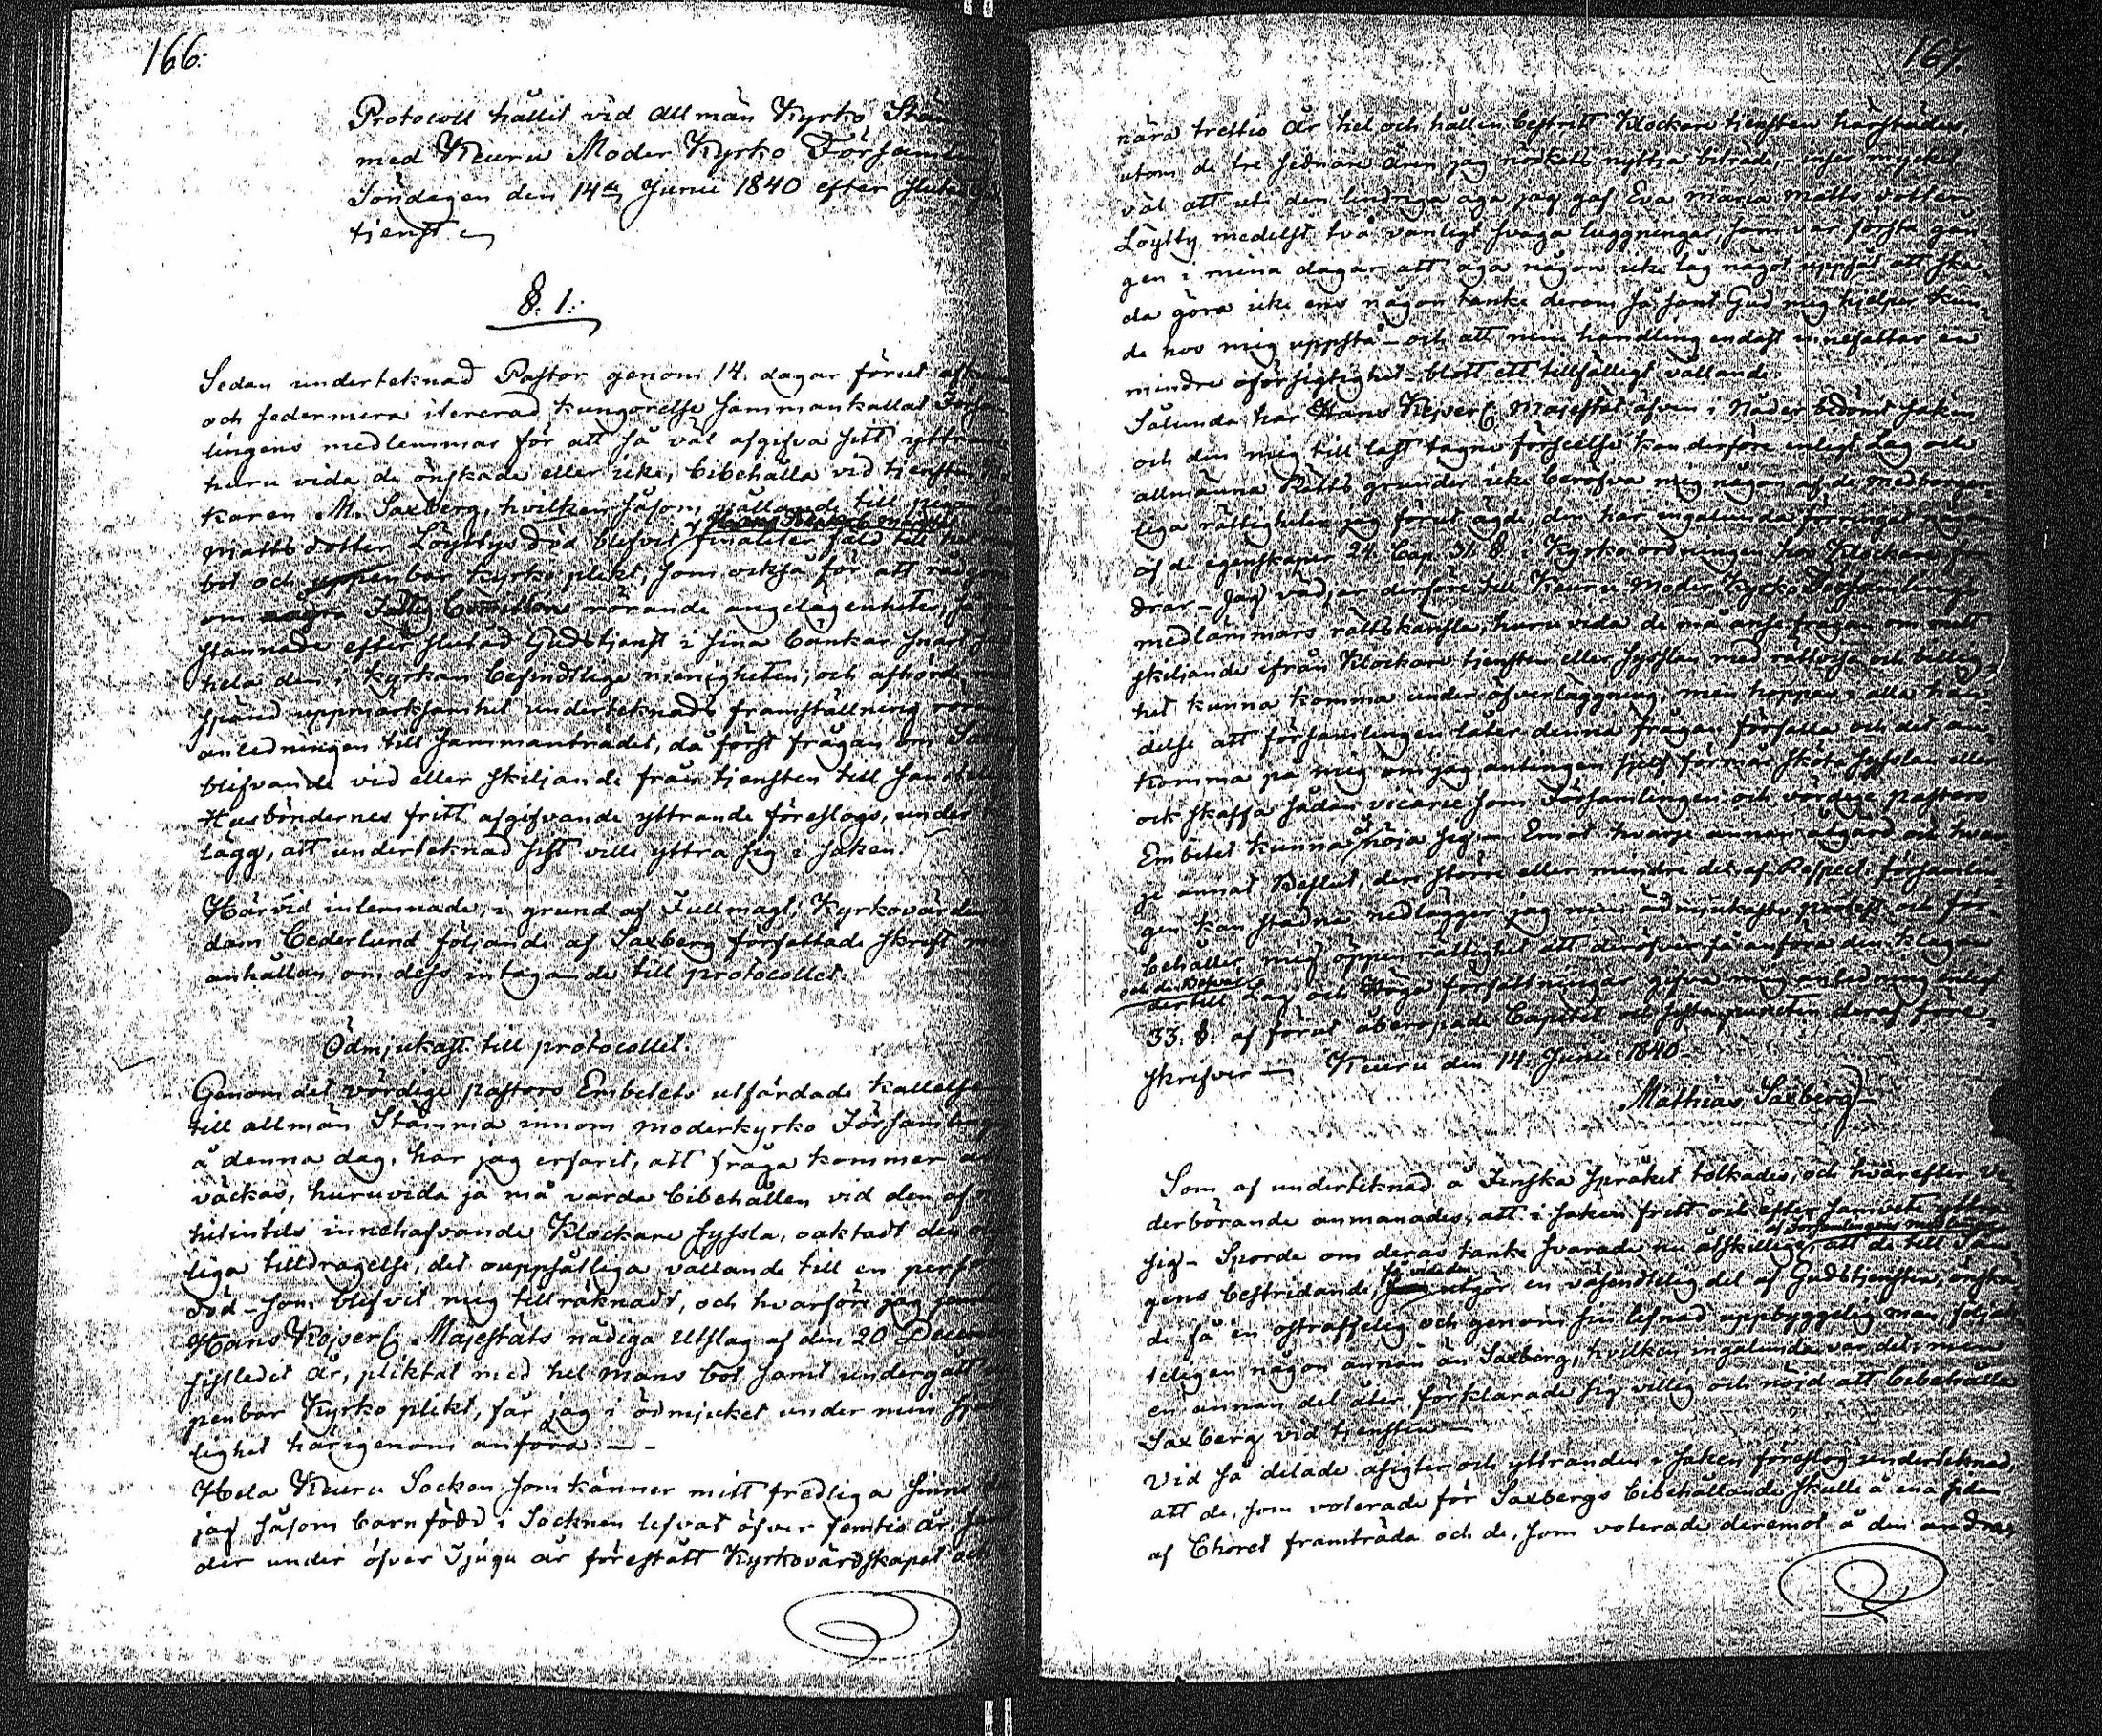 166.
Protocoll hållit vid allmän Kyrko Stäm
med Keuru Moder Kyrko Församlin
Söndagen den 14de Junii 1840 efter slutad Gu
tjenst.
§. 1.
Sedan undertecknad Pastor genom 14. dagar förut
och sedermera itererad kungörelse sammankallat Försam
lingens medlemmar för att så väl afgifva sitt yttrande
huru vida de önskade eller icke, bibehålla vid tjensten
karen M. Saxberg, hvilken såsom vållande till pigan
Mattsdotter Löyttys död blifvit finaliter fäld till hel
bot och uppenbar kyrko plikt, som också för att rådgöra
om Fattig rörande angelägenheter, så
stannade efter slutad Gudstjenst i sina bänkar snart
hela den i Kyrkan befindtlige menigheten, och afhörde
spänd uppmärksamhet undertecknads framställning rörande
anledningen till sammanträdet, då först frågan om Saxb
blifvande vid eller skiljande från tjensten till samtelige
Husböndernes fritt afgifvande yttrande föreslogs, under
lägg, att undertecknad sist ville yttra sig i saken.
Härvid inlemnade, i grund af Fullmagt, Kyrkovärden
dam Cederlund följande af Saxberg författade skrift
anhållan om dess intagande till protocollet.
Ödmjukast till protocollet.
Genom det vördige pastors Embetets utfärdade kallelse
till allmän Stämma innom moderkyrko Församlinge
å denna dag, har jag erfarit, att fråga kommer att
väckas, huruvida ja må varda bibehållen vid den af
hitintils innehafvande Klockare syssla, oaktadt den
liga tilldragelse, det ouppsåtliga vållande till en persons
död - som blifvit mig tillräknadt, och hvarföre jag
Hans Kejserl. Majestäts nådiga Utslag af den 20 Decem
sistledit år, pliktat med hel mans bot samt undergått
penbar Kyrko plikt, får jag i ödmjukhet under min
lighet härigenom anföra. - -
Hela Keuru Socken som känner mitt fredliga sinne
jag såsom barnfödd i Socknen lefvat öfver femtio år
der under öfver tjugu år förestått Kyrkovärdskapet och
167.
nära trettio år hel och hållen bestritt Klockare tjensten härstädes,
utom de tre sednare åren jag nödgats nyttja biträde, - inser mycket
väl att uti den lindriga aga jag gaf Eva Maria Matts dotter
Löytty medelst två vanligt svaga luggningar, som var första gån-
gen i mina dagar att aga någon icke låg något uppsåt att ska-
da göra icke ens någon tanke derom så sant Gud mig hjelper kun-
de hos mig uppstå - och att min handling endast innefattar en
mindre oförsigtighet - blott ett tillfälligt vållande.
Sålunda har Hans Kejserl. Majestät äfven i Nåder bedömt saken
och den mig till last tagne förseelse kan derföre enligt Lag och
allmänna Rätts grunder icke beröfva mig någon af de medborger-
liga rättigheter jag förut ägde, den har ingalunda förringat någon
af de egenskaper 24. Cap. 31. §. i Kyrko ordningen hos Klockare for-
drar - Jag vädjar derföre till Keuru Moder Kyrko Församlings
medlämmars rättskänsla, huruvida de må anse frågan om mitt
skiljande ifrån Klockare tjensten eller sysslan med rättvisa och billig-
het kunna komma under öfverläggning, men hoppas i alla hän-
delse att församlingen låter denna frågan förfalla och det an-
komma på mig om jag antingen sjelf förmår sköta sysslan eller
ock skaffa sådan vicarie som Församlingen och vördige pastors
Embetet kunna åtnöja sig - Emot hvarje annan åtgärd och hvar-
je annat Beslut, den större eller mindre del af Respect. församlin-
gen kan stadna nedlägger jag min ödmjukaste protest och för-
behåller mig öppen rättighet att deröfver få anföra den klagan
och de Besvär
dertill Lag och Höga författningar gifva mig anledning enligt
33. §. af förut åberopade Capitel och sista puncten deraf före-
skrifver - Keuru den 14. Junii 1840 -
Mathias Saxberg -
Som af undertecknad å Finska språket tolkades, och hvarefter ve-
derbörande anmanades, att i saken fritt och efter samvete yttra
af Församlingens medlemmar
sig - Sporde om deras tanke svarade nu åtskillige, att de till Sån-
gens bestridande, så vida den utgör en väsendtelig del af Gudstjensten, önska
de få en ostraffelig och genom sin lefnad uppbyggelig man, följak-
teligen någon annan än Saxberg, hvilken ingalunda var det, men
en annan del åter förklarade sig villig och nöjd att bibehålla
Saxberg vid tjensten -
Vid så delade åsigter och yttranden i saken föreslog undertecknad,
att de, som voterade för Saxbergs bibehållande skulle å ena sidan
af Choret framträda och de, som voterade deremot å den andra,